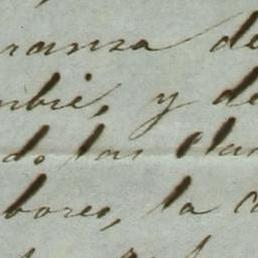 ranza de
mbie, y de
do las llan
bores, la c